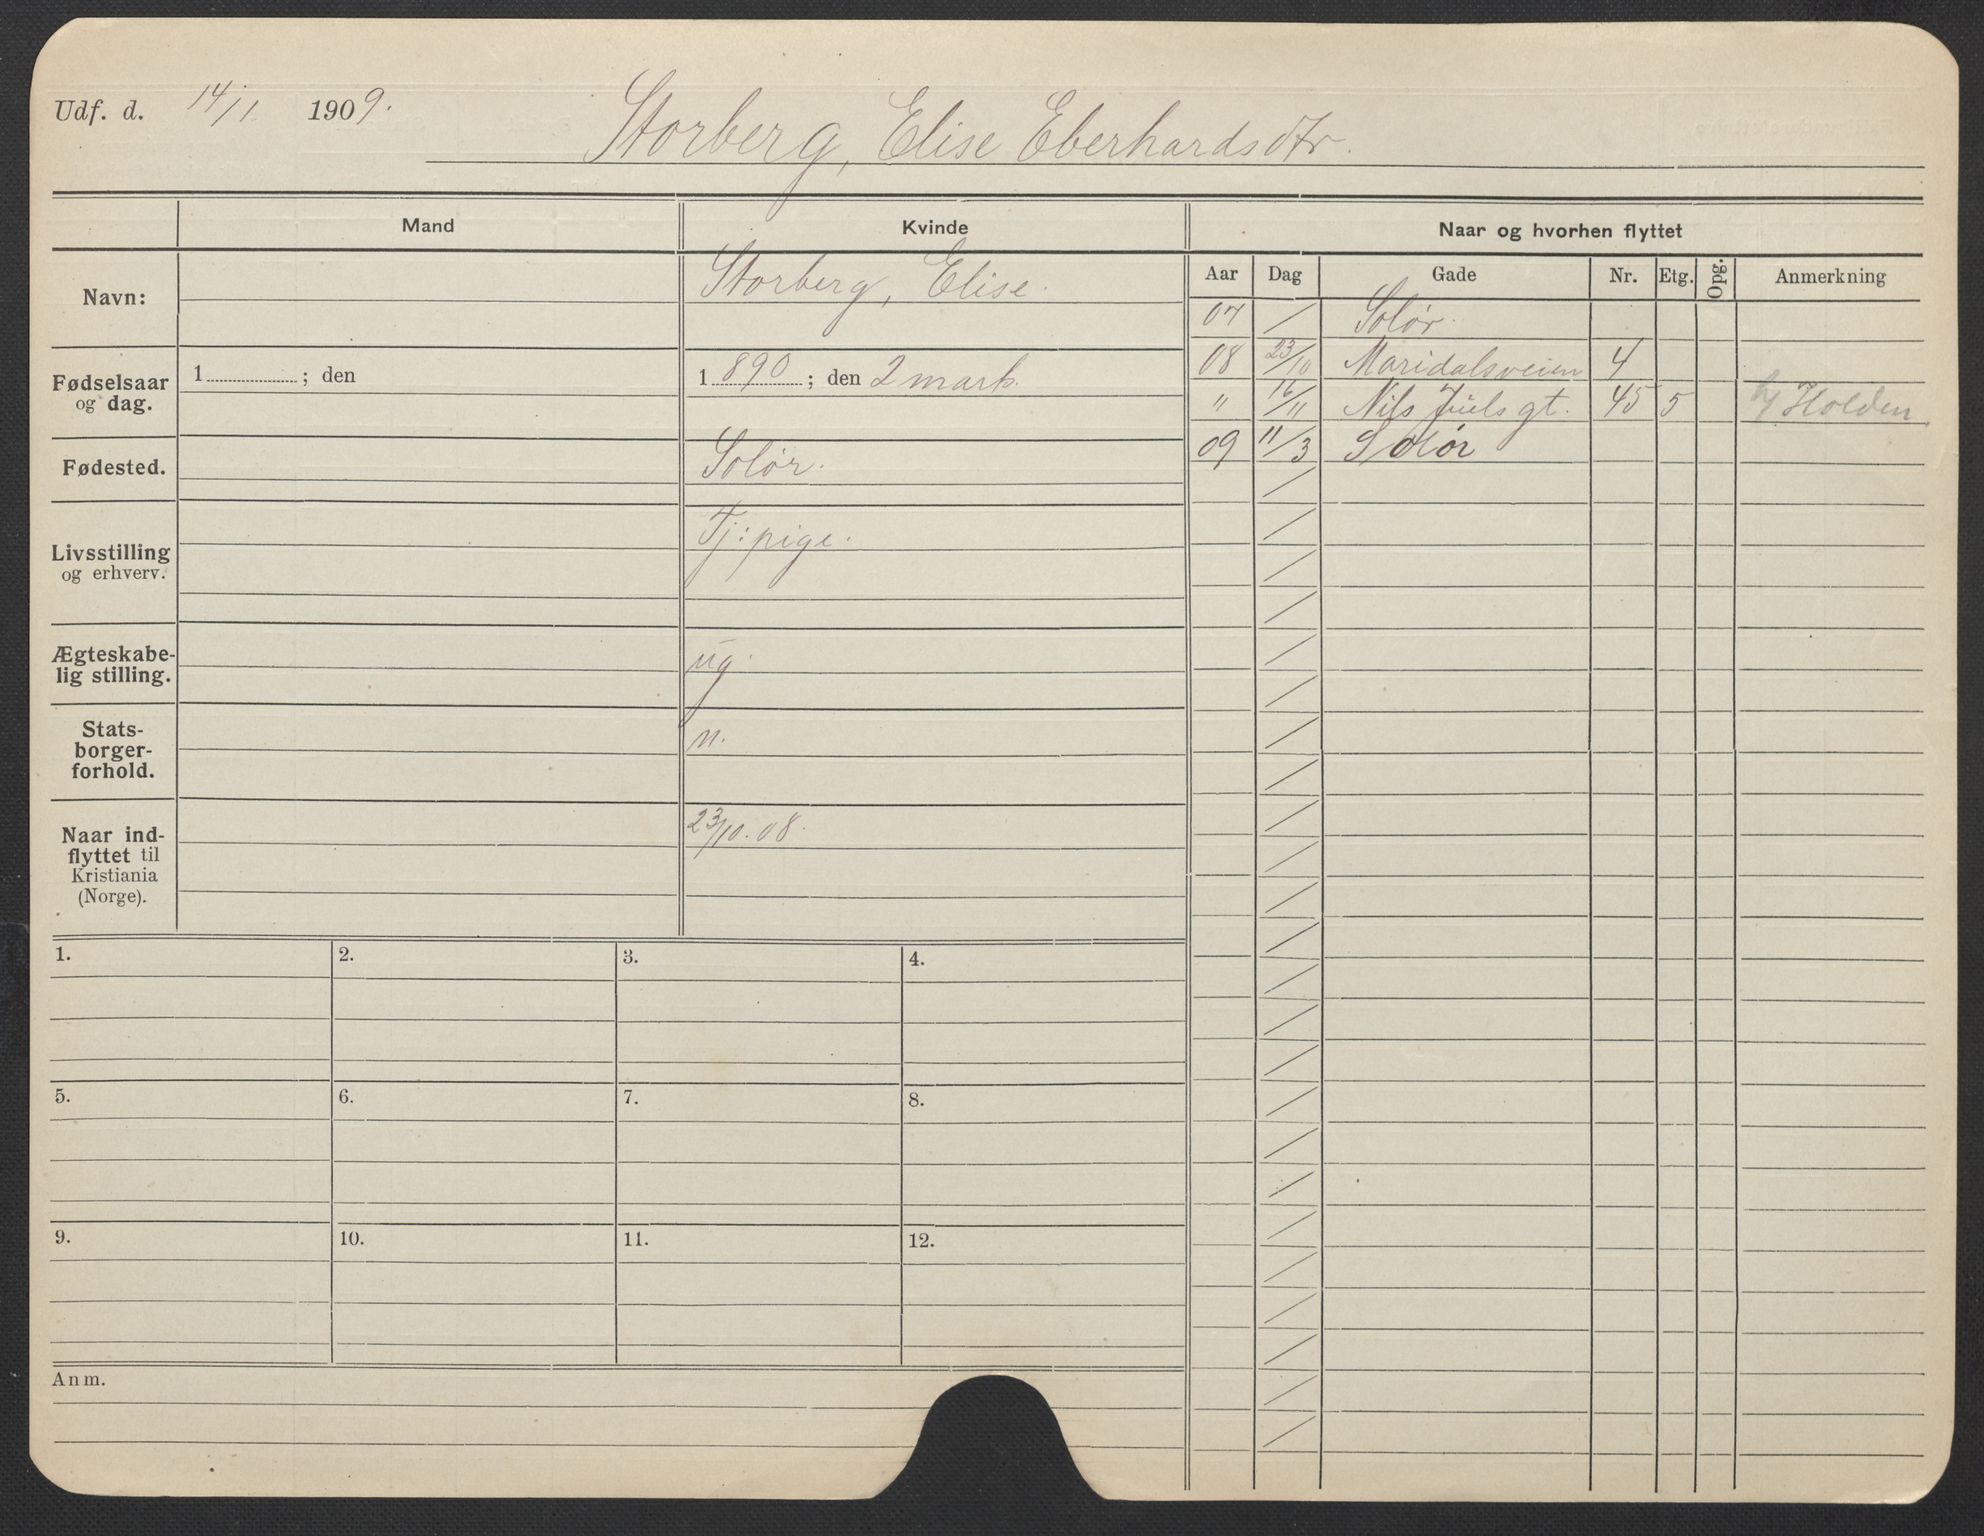 Udf. d. 14/1 1909.
Storberg, Elise Eberhardsdtr.
Mand
Kvinde
Naar og hvorhen flyttet
Navn:
Storberg, Elise.
Fødselsaar
og dag.
1 ; den
1 890 ; den 2 marts.
Fødested.
Solør.
Livsstilling
og erhverv.
Tj: pige.
Ægteskabe-
lig stilling.
ug.
Stats-
borger-
forhold.
n.
Naar ind-
flyttet til
Kristiania
(Norge).
23/10. 08.
Aar Dag Gade Nr. Etg. Opg. Anmerkning
07 / Solør.
08 23/10 Maridalsveien 4
" 16/11 Nils Juels gt. 45 5 h/ Holden
09 11/3 Solør
1. 2. 3. 4.
5. 6. 7. 8.
9. 10. 11. 12.
Anm.